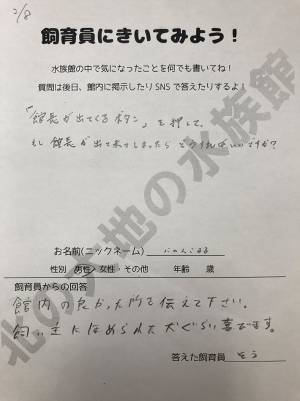 2/8
飼育員にきいてみよう！
水族館の中で気になったことを何でも書いてね！
質問は後日、館内に掲示したりSNSで答えたりするよ！
「館長が出てくるボタン」を押して、
もし館長が出て来てしまったらどうすればいいですか？
お名前(ニックネーム)
性別 男性・女性・その他 年齢 歳
飼育員からの回答
館内の良かった所を伝えて下さい。
飼い主にほめられた犬ぐらい喜びます。
答えた飼育員
北の大地の水族館